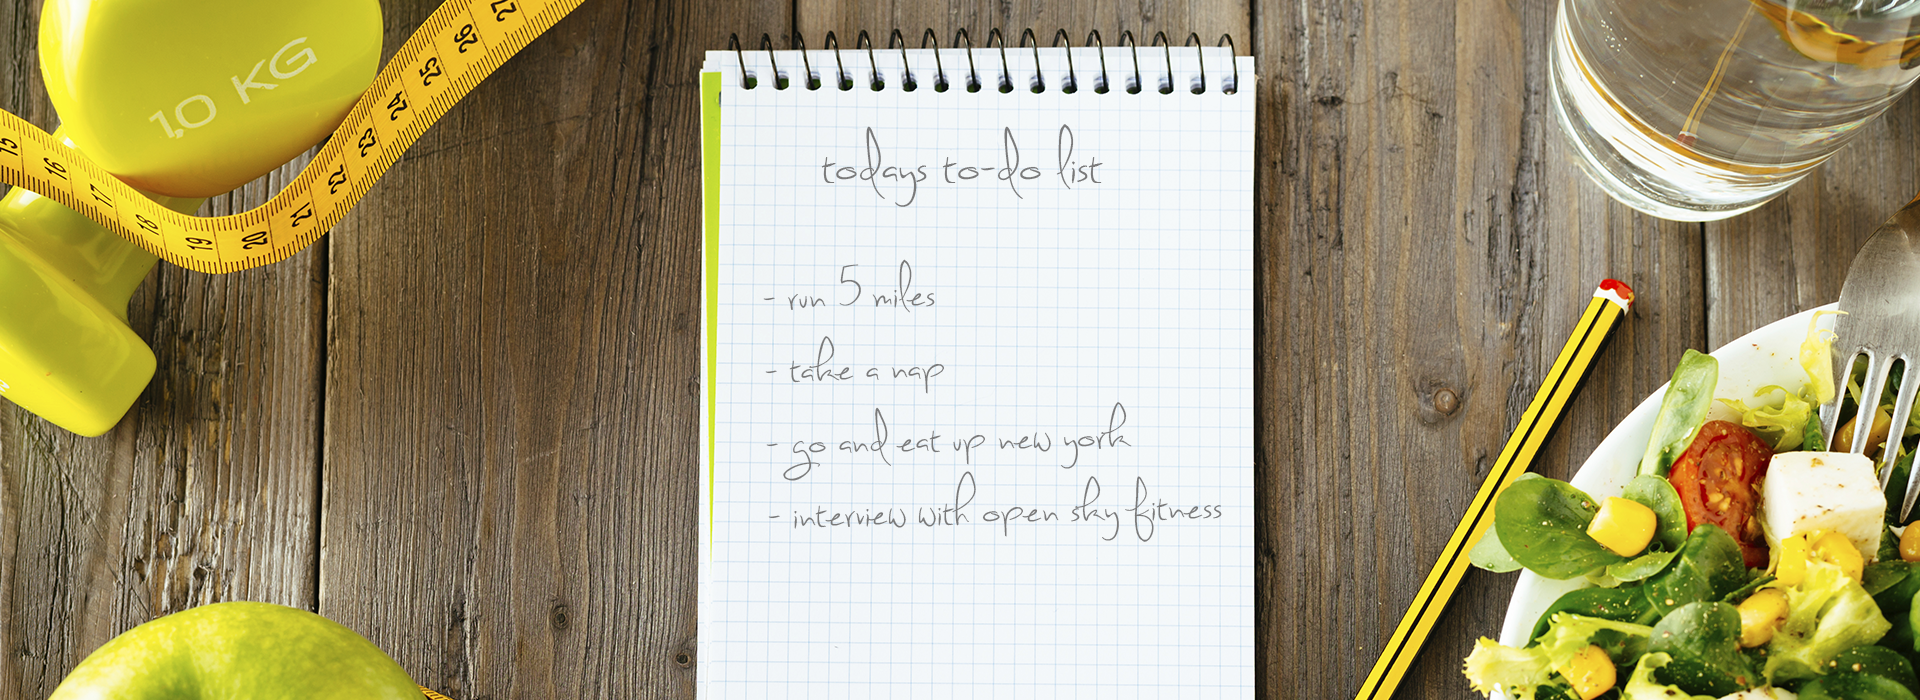 1,0 KG
15 16 17 18 19 20 21 22 23 24 25 26 27
todays to-do list
- run 5 miles
- take a nap
- go and eat up new york
- interview with open sky fitness